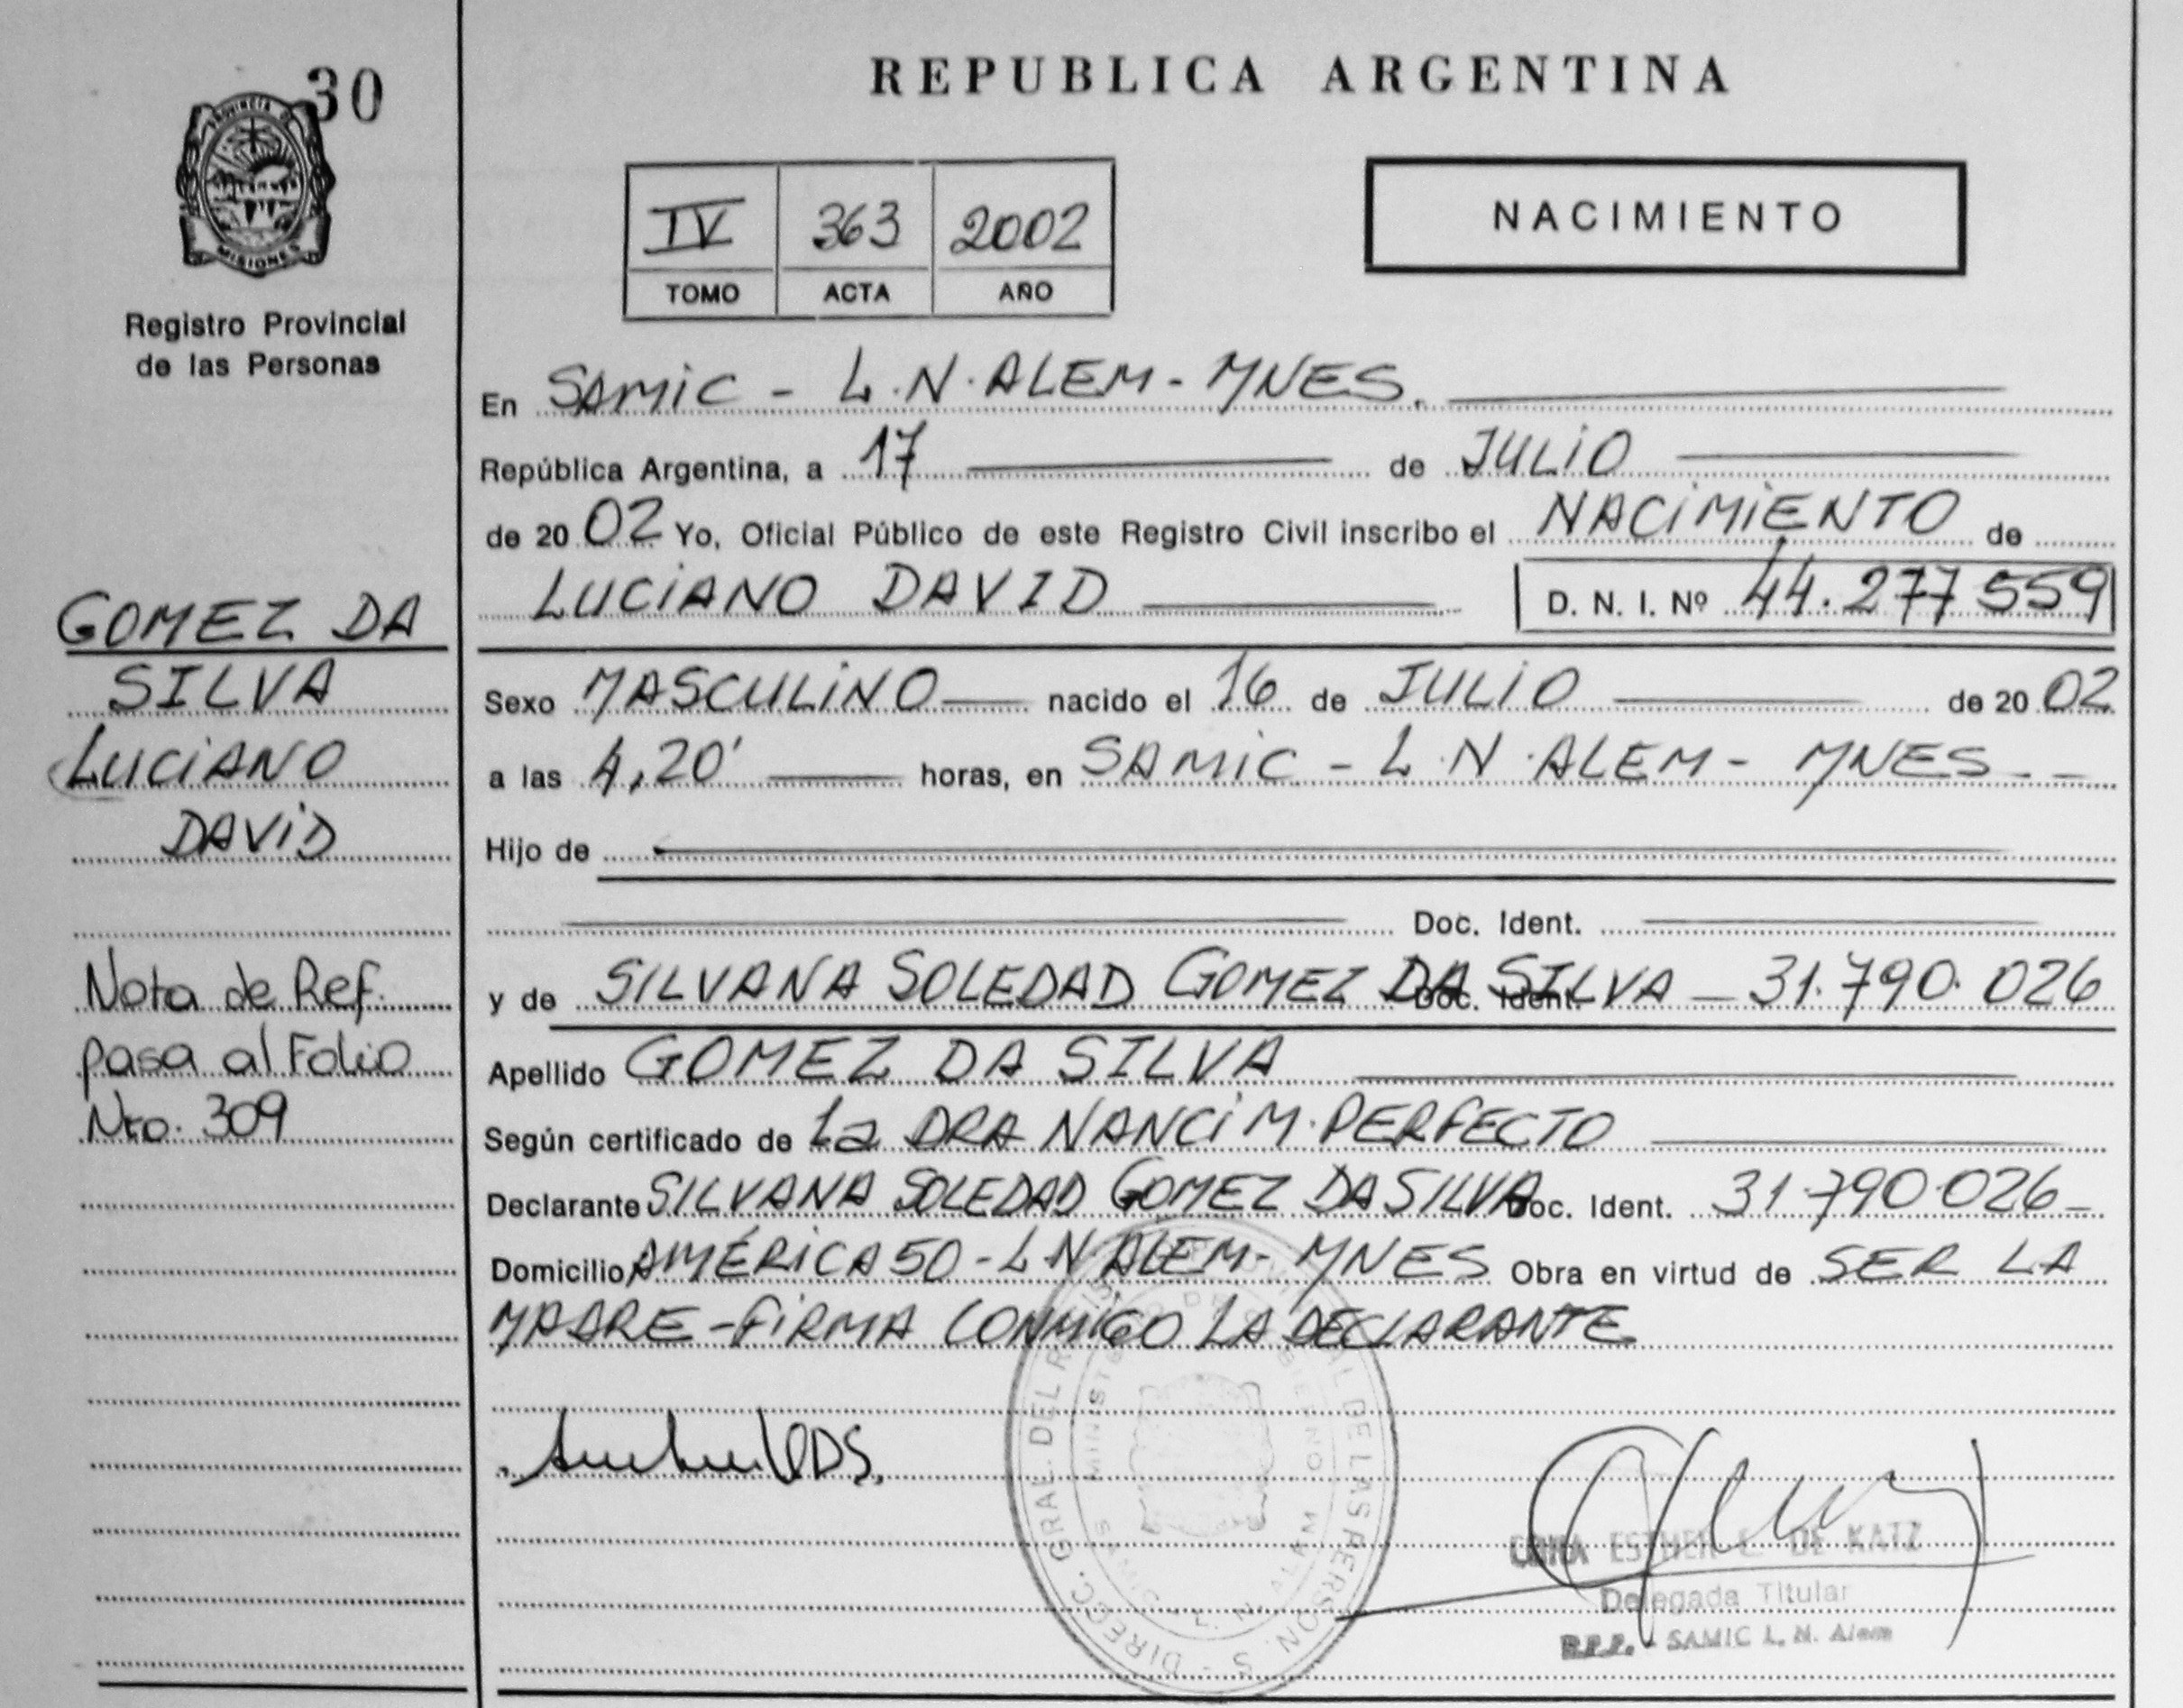 30
PROVINCIA DE
MISIONES
Registro Provincial
de las Personas
GOMEZ DA
SILVA
LUCIANO
DAVID
Nota de Ref.
pasa al Folio
Nro. 309
REPUBLICA ARGENTINA
IV 363 2002
TOMO ACTA AÑO
NACIMIENTO
En SAMIC - L.N.ALEM - MNES.
República Argentina, a 17 de JULIO
de 20 02 Yo, Oficial Público de este Registro Civil inscribo el NACIMIENTO de
LUCIANO DAVID D. N. I. Nº 44.277559
Sexo MASCULINO nacido el 16 de JULIO de 20 02
a las 4,20' horas, en SAMIC - L.N.ALEM - MNES
Hijo de
Doc. Ident.
y de SILVANA SOLEDAD GOMEZ DA SILVA Doc. Ident. 31.790.026
Apellido GOMEZ DA SILVA
Según certificado de La DRA NANCI M. PERFECTO
Declarante SILVANA SOLEDAD GOMEZ DA SILVA Doc. Ident. 31.790.026
Domicilio AMÉRICA 50 - L N ALEM - MNES Obra en virtud de SER LA
MADRE - FIRMA CONMIGO LA DECLARANTE
ESTHER DE KATZ
Delegada Titular
R.P.P. - SAMIC L. N. Alem